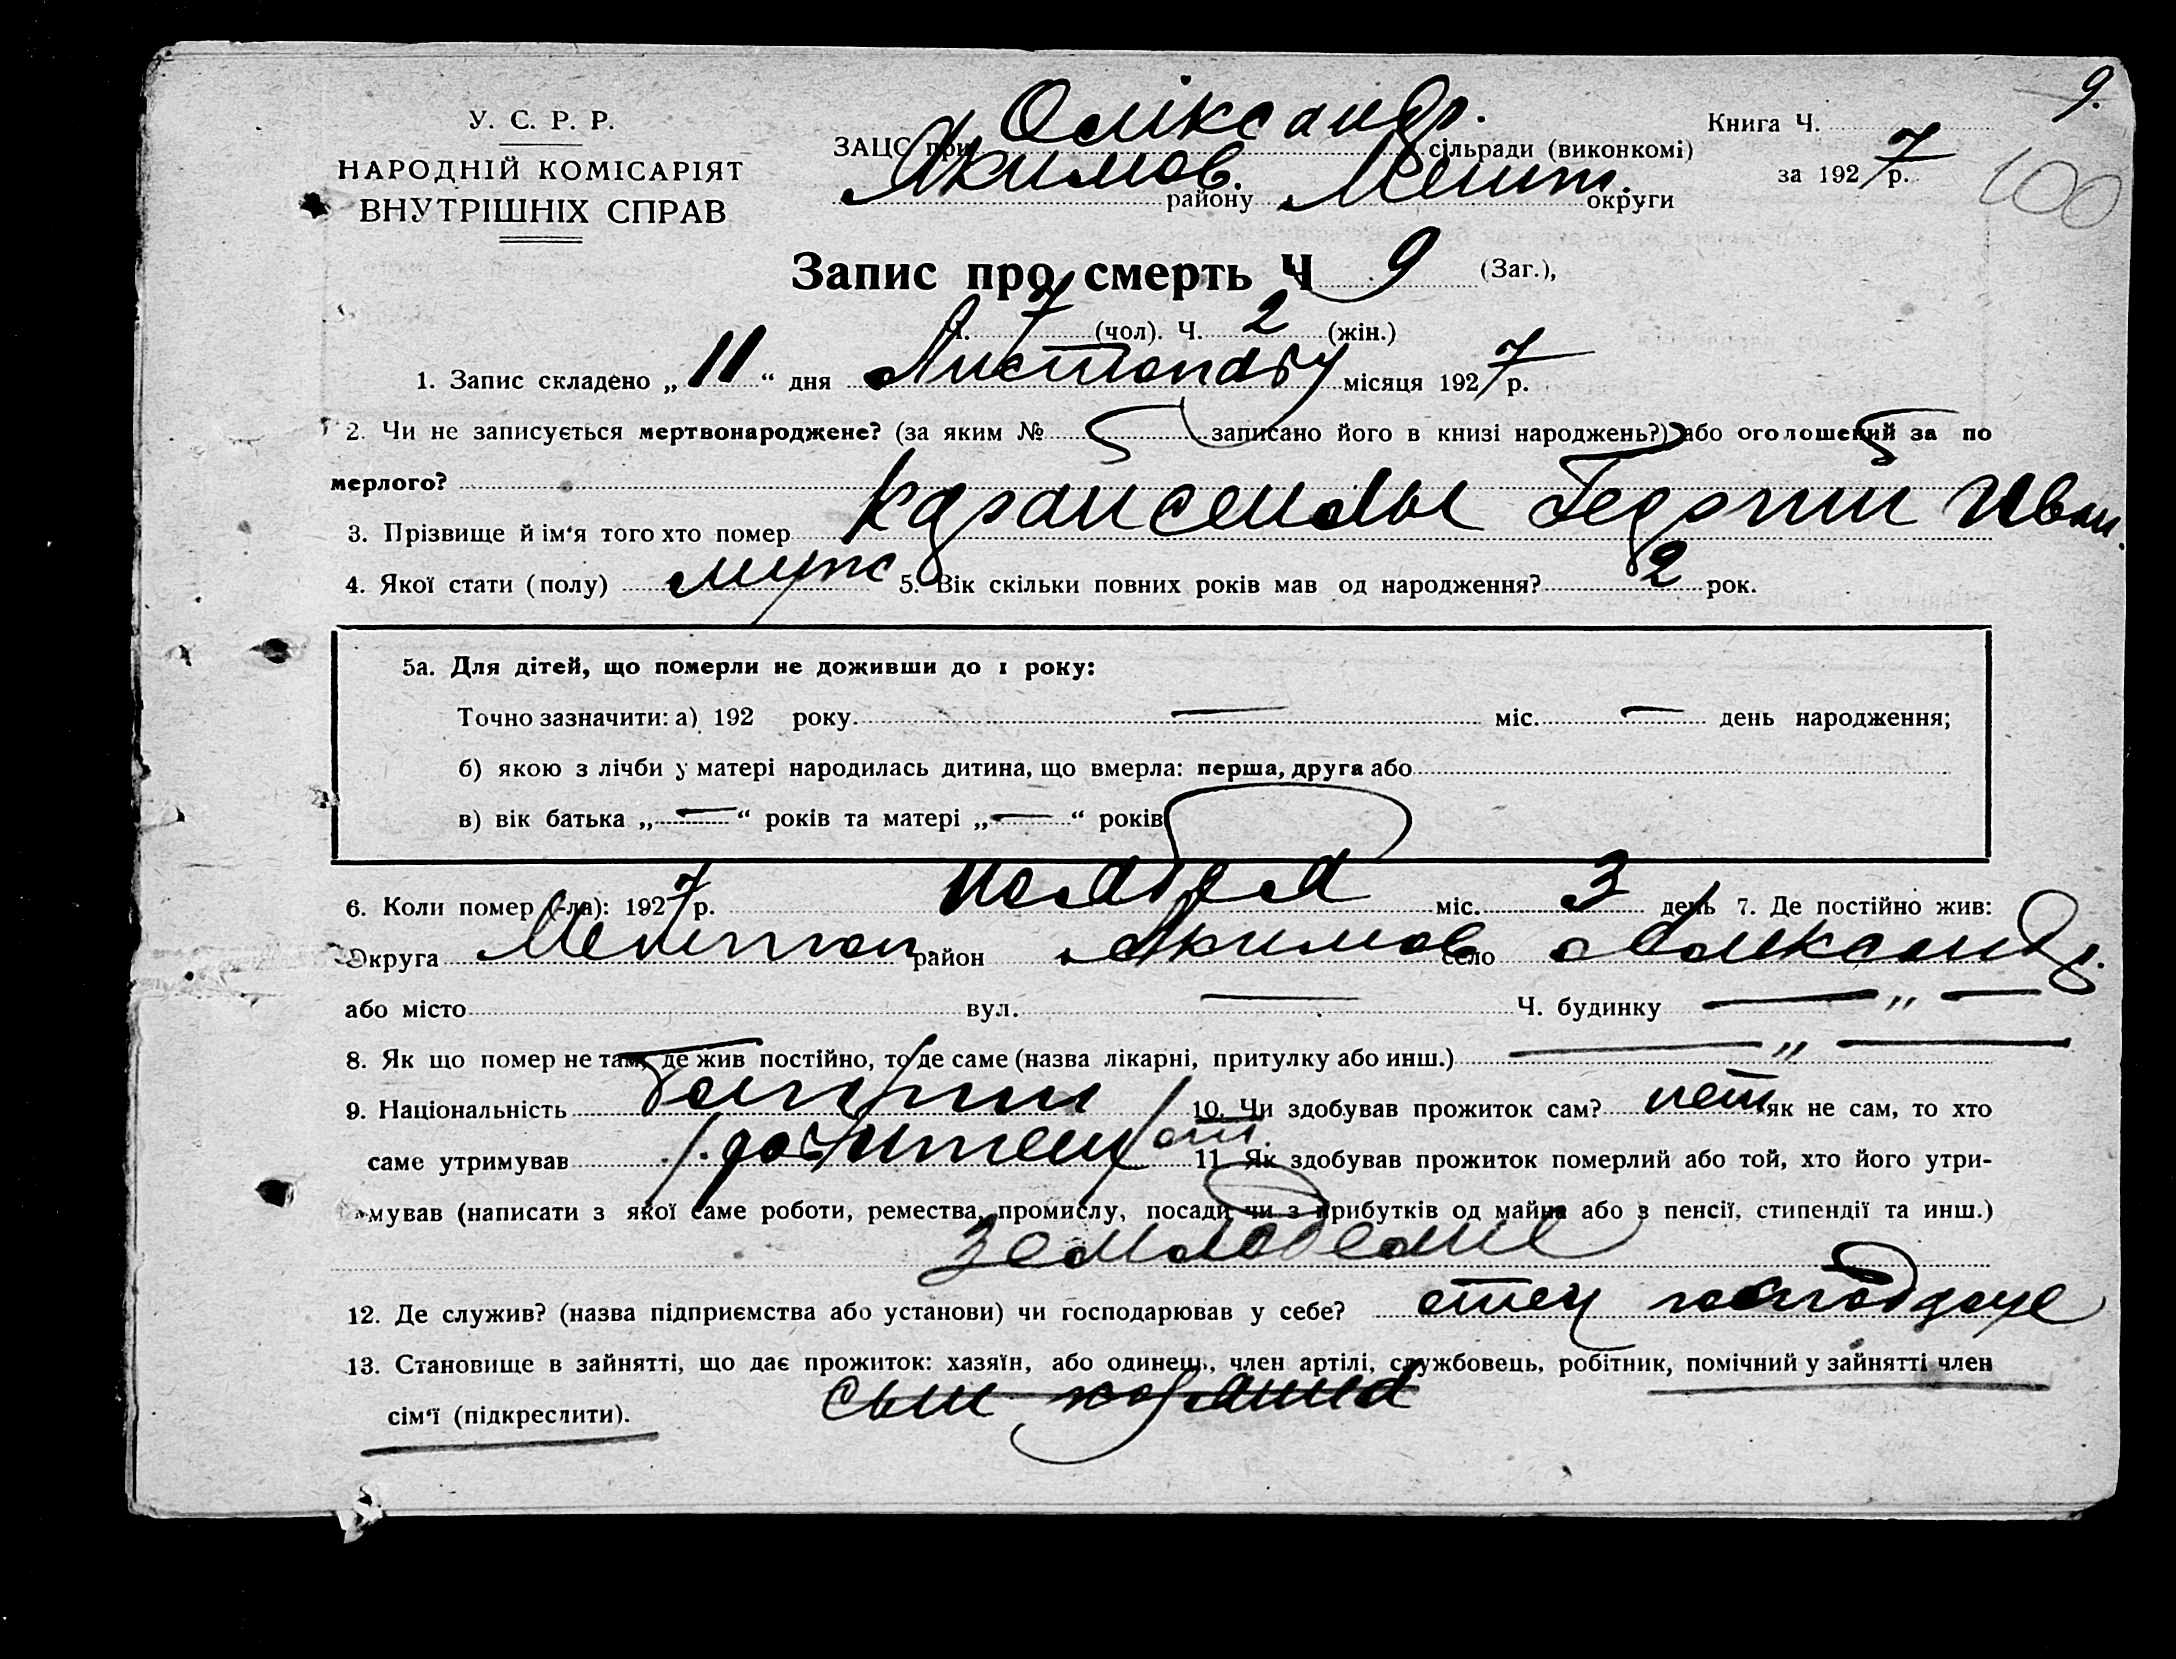 9.
У. С. Р. Р.
НАРОДНІЙ КОМІСАРІЯТ
ВНУТРІШНІХ СПРАВ
ЗАЦС при Оліксандр. сільради (виконкомі)
Якимов. району Меліт. округи
Книга Ч.
за 1927 р.
100
Запис про смерть Ч 9 (Заг.),
Ч. 7 (чол). Ч. 2 (жін.)
1. Запис складено „ 11 “ дня Листопаду місяця 1927 р.
2. Чи не записується мертвонароджене? (за яким № записано його в книзі народжень?) або оголошений за по
мерлого?
3. Прізвище й ім‘я того хто помер Георгий Иван.
4. Якої стати (полу) муж 5. Вік скільки повних років мав од народження? 2 рок.
5а. Для дітей, що померли не доживши до 1 року:
Точно зазначити: а) 192 року. — міс. — день народження;
б) якою з лічби у матері народилась дитина, що вмерла: перша, друга або
в) вік батька „ — “ років та матері „ — “ років
6. Коли помер (-ла): 1927 р. ноября міс. 3 день 7. Де постійно жив:
Округа Мелитоп район Якимов село Олександр.
або місто вул. — Ч. будинку — „ —
8. Як що помер не там, де жив постійно, то де саме (назва лікарні, притулку або инш.) — „ —
9. Національність болгарин 10. Чи здобував прожиток сам? нет як не сам, то хто
саме утримував родители 11. Як здобував прожиток померлий або той, хто його утри-
мував (написати з якої саме роботи, ремества, промислу, посади чи з прибутків од майна або з пенсії, стипендії та инш.)
земледелие
12. Де служив? (назва підприємства або установи) чи господарював у себе? отец
13. Становище в зайнятті, що дає прожиток: хазяїн, або одинець, член артілі, службовець, робітник, помічний у зайнятті член
сім‘ї (підкреслити). сын хозяина